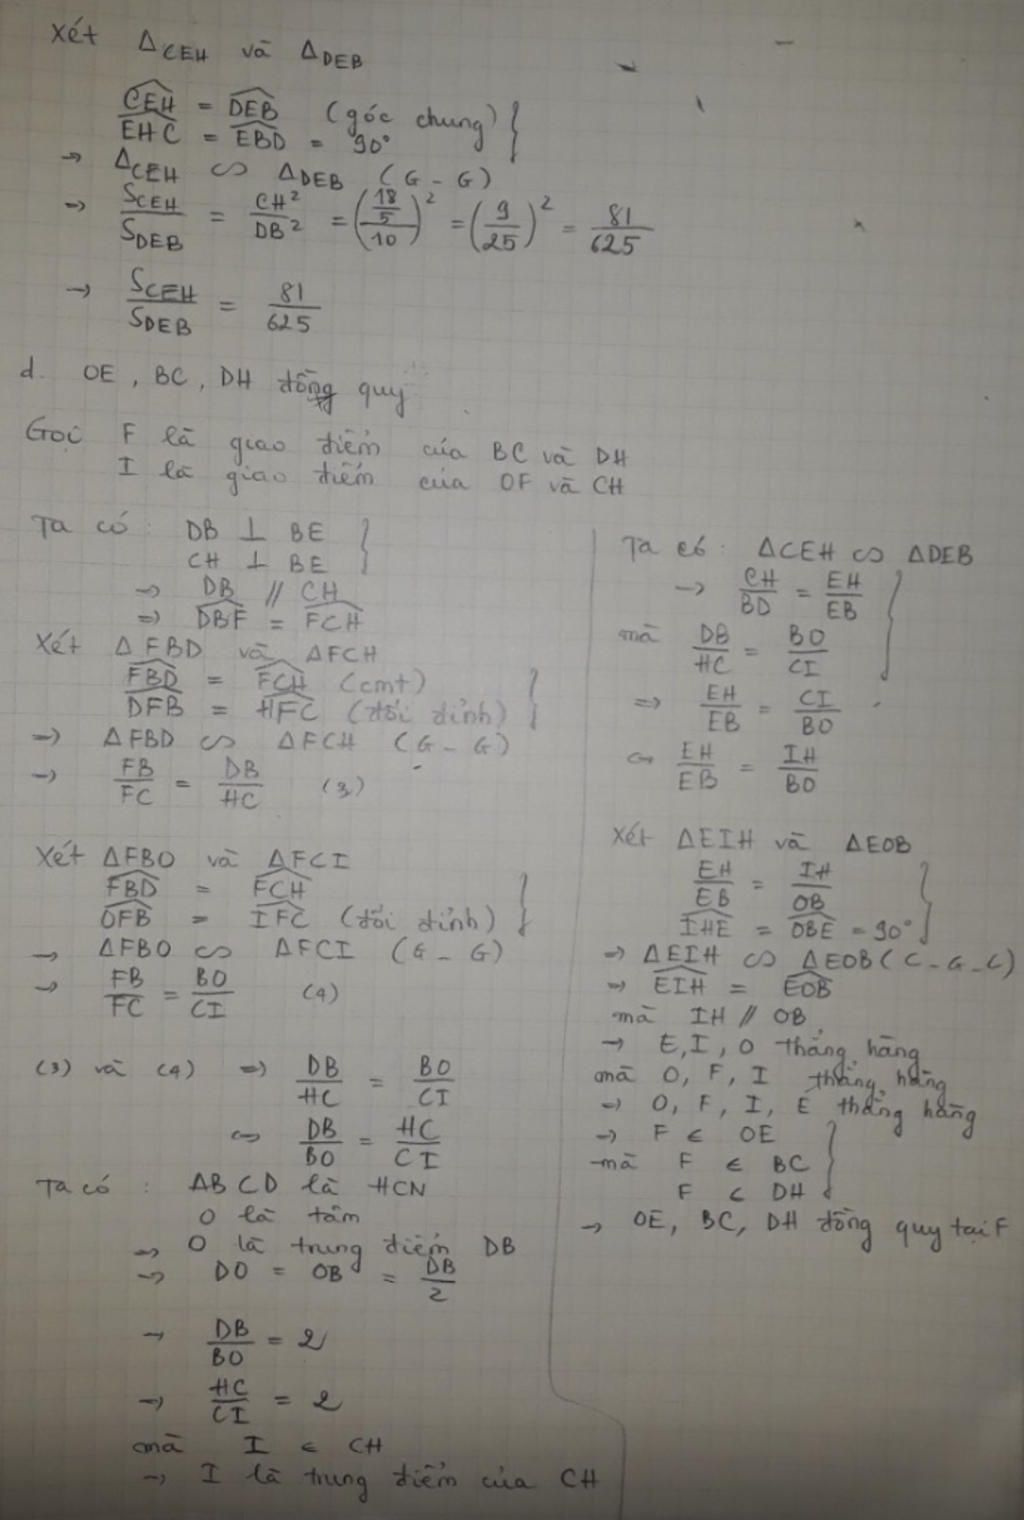 Xét Δ CEH và Δ DEB
CEH = DEB (góc chung) }
EHC = EBD = 90°
→ Δ CEH ∽ Δ DEB (G - G)
→ S CEH / S DEB = CH² / DB² = (18/5 / 10)² = (9/25)² = 81/625
→ S CEH / S DEB = 81/625
d. OE, BC, DH đồng quy
Gọi F là giao điểm của BC và DH
I là giao điểm của OF và CH
Ta có : DB ⊥ BE }
CH ⊥ BE
→ DB // CH
⇒ DBF = FCH
Xét Δ FBD và ΔFCH
FBD = FCH (cmt) }
DFB = HFC (đối đỉnh)
⇒ ΔFBD ∽ ΔFCH (G - G)
→ FB/FC = DB/HC (3)
Xét ΔFBO và ΔFCI
FBD = FCH }
OFB = IFC (đối đỉnh)
→ ΔFBO ∽ ΔFCI (G - G)
→ FB/FC = BO/CI (4)
(3) và (4) ⇒ DB/HC = BO/CI
⇔ DB/BO = HC/CI
Ta có : ABCD là HCN
O là tâm
⇒ O là trung điểm DB
→ DO = OB = DB/2
→ DB/BO = 2
→ HC/CI = 2
mà I ∈ CH
→ I là trung điểm của CH
Ta có : ΔCEH ∽ ΔDEB
→ CH/BD = EH/EB }
mà DB/HC = BO/CI
⇒ EH/EB = CI/BO
⇔ EH/EB = IH/BO
Xét ΔEIH và ΔEOB
EH/EB = IH/OB }
IHE = OBE = 90°
→ ΔEIH ∽ ΔEOB (C - G - C)
⇒ EIH = EOB
mà IH // OB
→ E, I, O thẳng hàng
mà O, F, I thẳng hàng
→ O, F, I, E thẳng hàng
→ F ∈ OE }
mà F ∈ BC
F ∈ DH
→ OE, BC, DH đồng quy tại F